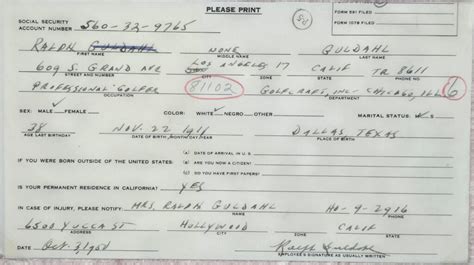 PLEASE PRINT
SOCIAL SECURITY ACCOUNT NUMBER 560-32-9765
FORM 591 FILED
FORM 1078 FILED
RALPH GULDAHL NONE GULDAHL
FIRST NAME MIDDLE NAME LAST NAME
609 S. GRAND AVE LOS ANGELES 17 CALIF TR 8611
STREET AND NUMBER CITY ZONE STATE
PROFESSIONAL GOLFER 81102 GOLFCRAFT, INC- CHICAGO, ILL 6
OCCUPATION DEPARTMENT
SEX: MALE ✓ FEMALE COLOR: WHITE ✓ NEGRO OTHER MARITAL STATUS: M S
38 NOV. 22 1911 DALLAS TEXAS
AGE LAST BIRTHDAY DATE OF BIRTH, MONTH, DAY, YEAR PLACE OF BIRTH
(a) DATE OF ARRIVAL IN U.S.
IF YOU WERE BORN OUTSIDE OF THE UNITED STATES: (b) ARE YOU NOW A CITIZEN?
(c) DO YOU HAVE FIRST PAPERS?
IS YOUR PERMANENT RESIDENCE IN CALIFORNIA? YES
IN CASE OF INJURY, PLEASE NOTIFY: MRS. RALPH GULDAHL HO-9-2916
6500 YUCCA ST HOLLYWOOD CALIF
STREET AND NUMBER CITY STATE
DATED Oct 3, 1950 Ralph Guldahl
EMPLOYEE'S SIGNATURE AS USUALLY WRITTEN